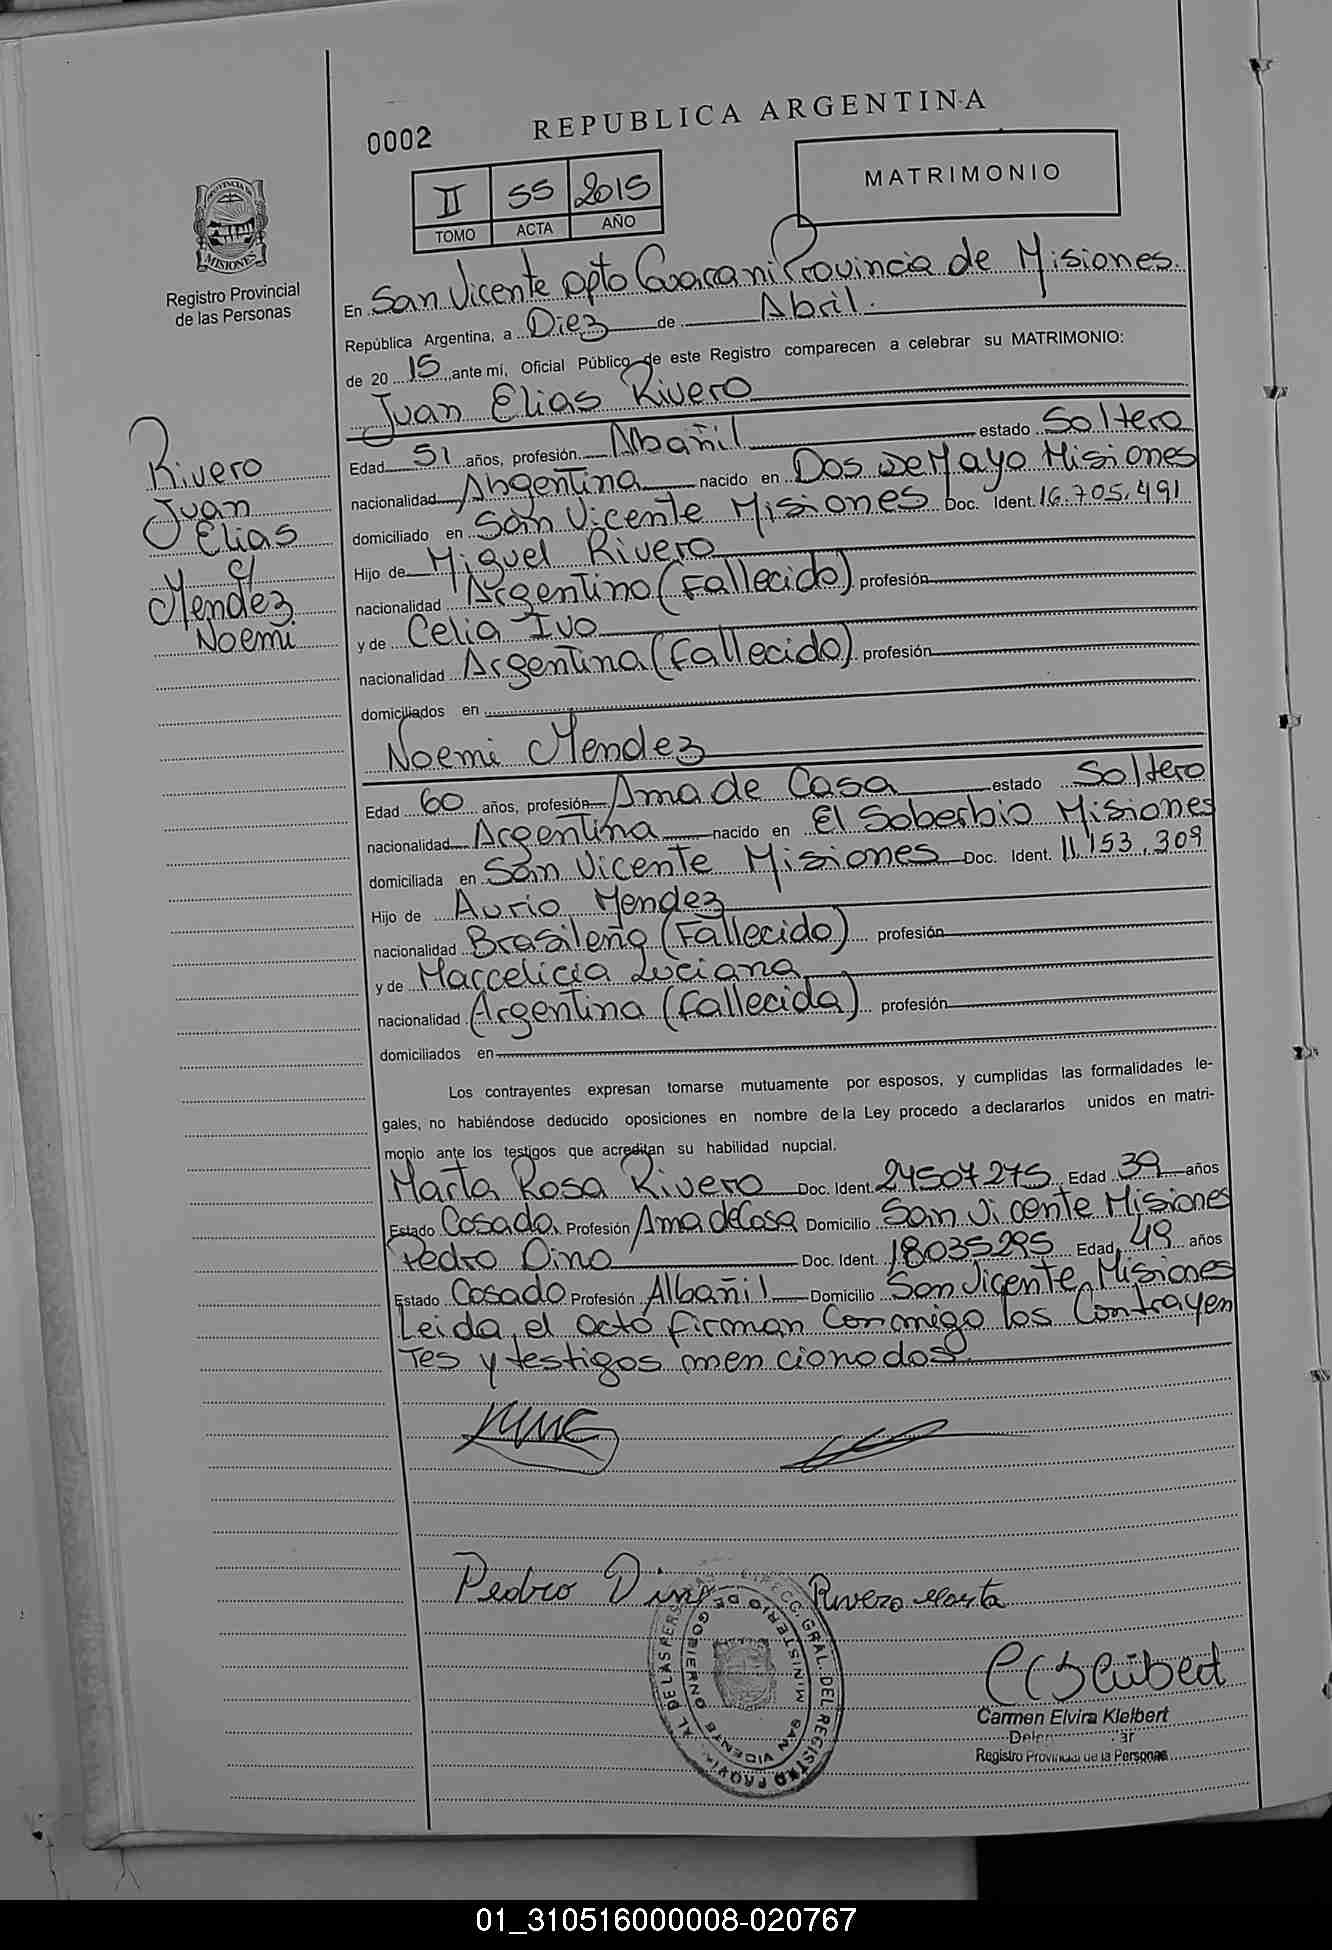 0002
REPUBLICA ARGENTINA
II 55 2015
TOMO ACTA AÑO
MATRIMONIO
PROVINCIA DE
MISIONES
Registro Provincial
de las Personas
En San Vicente Dpto Guarani Provincia de Misiones
República Argentina, a Diez de Abril.
de 20 15 ante mí, Oficial Público de este Registro comparecen a celebrar su MATRIMONIO:
Juan Elias Rivero
Edad 51 años, profesión Albañil estado Soltero
nacionalidad Argentina nacido en Dos De Mayo Misiones
domiciliado en San Vicente Misiones Doc. Ident. 16.705.491
Hijo de Miguel Rivero
nacionalidad Argentino (Fallecido) profesión
y de Celia Ivo
nacionalidad Argentina (Fallecido) profesión
domiciliados en
Rivero
Juan
Elias
y c/
Mendez
Noemi
Noemi Mendez
Edad 60 años, profesión Ama de Casa estado Soltero
nacionalidad Argentina nacido en El Soberbio Misiones
domiciliada en San Vicente Misiones Doc. Ident. 11.153.309
Hijo de Aurio Mendez
nacionalidad Brasileño (Fallecido) profesión
y de Marcelicia Luciana
nacionalidad Argentina (Fallecida) profesión
domiciliados en
Los contrayentes expresan tomarse mutuamente por esposos, y cumplidas las formalidades le-
gales, no habiéndose deducido oposiciones en nombre de la Ley procedo a declararlos unidos en matri-
monio ante los testigos que acreditan su habilidad nupcial.
Marta Rosa Rivero Doc. Ident. 24507275 Edad 39 años
Estado Casado Profesión Ama de Casa Domicilio San Vicente Misiones
Pedro Dino Doc. Ident. 18035295 Edad 49 años
Estado Casado Profesión Albañil Domicilio San Vicente Misiones
Leida, el acto firman conmigo los Contrayen
tes y testigos mencionados.
Pedro Dino Rivero Marta
DIRECC. GRAL. DEL REGISTRO PROVINCIAL DE LAS PERSONAS
MINISTERIO DE GOBIERNO
SAN VICENTE
Carmen Elvira Kleibert
Registro Provincial de la Personas
01_310516000008-020767